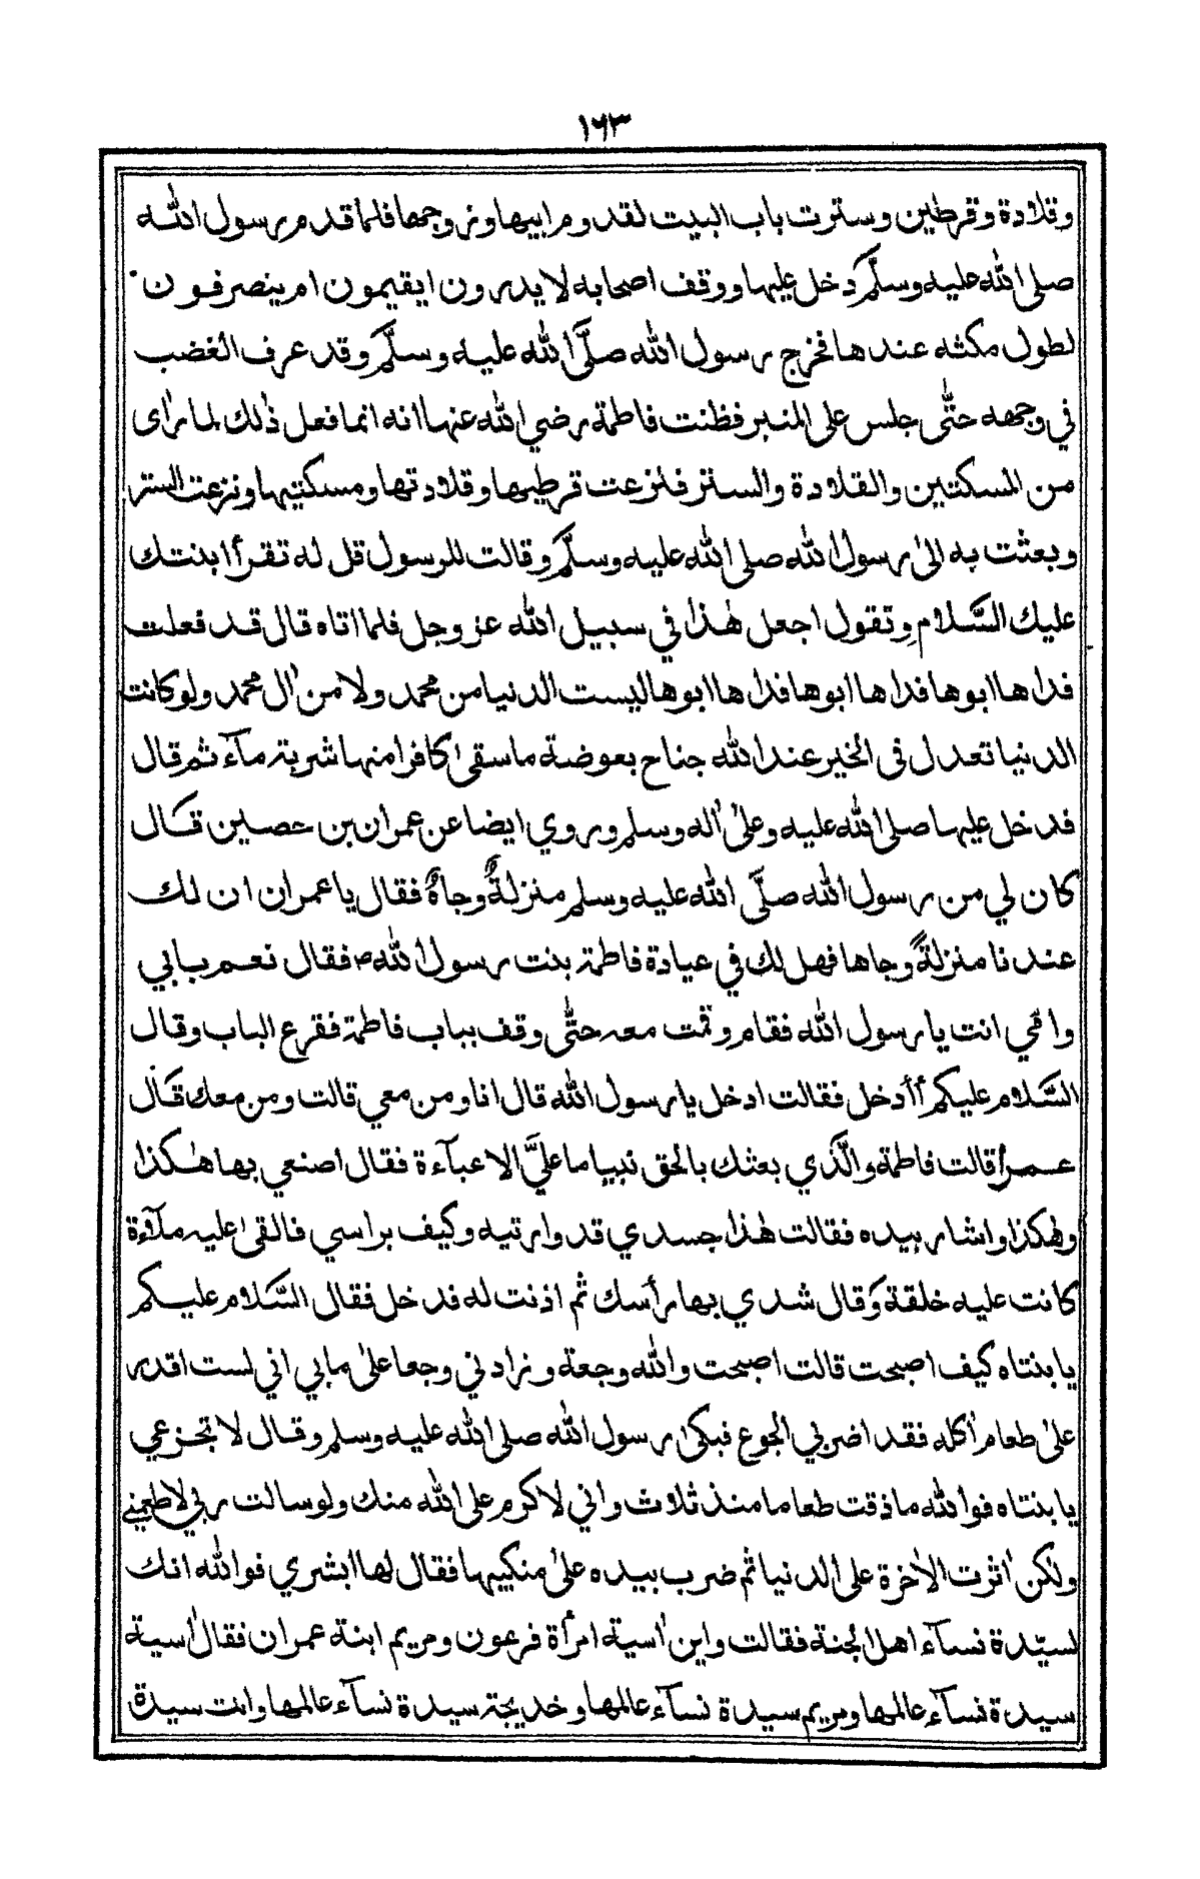 ١٦٣
وقلادة وقرطين وسترت باب البيت لقدوم ابيها وزوجها فلما قدم رسول الله
صلى الله عليه وسلّم دخل عليها ووقف اصحابه لا يدرون ايقيمون ام ينصرفون
لطول مكثه عندها فخرج رسول الله صلَّى الله عليه وسلَّم وقد عرف الغضب
في وجهه حتّٰى جلس على المنبر فظنت فاطمة رضي الله عنها انه انما فعل ذٰلك لما راٰى
من المسكتين والقلادة والستر فنزعت قرطيها وقلادتها ومسكتيها ونزعت الستر
وبعثت به الىٰ رسول الله صلى الله عليه وسلَّم وقالت للرسول قل له تقرأ ابنتك
عليك السَّلام وتقول اجعل هٰذا في سبيل الله عز وجل فلما اتاه قال قد فعلت
فداها ابوها فداها ابوها فداها ابوها ليست الدنيا من محمد ولا من اٰل محمد ولو كانت
الدنيا تعدل فى الخير عند الله جناح بعوضة ما سقىٰ كافرا منها شربة مآء ثم قال
فدخل عليها صلى الله عليه وعلىٰ اٰله وسلم وروي ايضا عن عمران بن حصين قال
كان لي من رسول الله صلَّى الله عليه وسلم منزلةٌ وجاهٌ فقال يا عمران ان لك
عندنا منزلةً وجاها فهل لك في عيادة فاطمة بنت رسول اللهص فقال نعم بابي
وامي انت يا رسول الله فقام وقمت معه حتّٰى وقف بباب فاطمة فقرع الباب وقال
السَّلام عليكم أأدخل فقالت ادخل يا رسول الله قال انا ومن معي قالت ومن معك قال
عمران قالت فاطمة والَّذي بعثك بالحق نبيا ما عليَّ الا عبآءة فقال اصنعي بها هٰكذا
وهٰكذا واشار بيده فقالت هٰذا جسدي قد وارتيه وكيف براسي فالقىٰ عليه ملآءة
كانت عليه خلقة وقال شدي بها رأسك ثم اذنت له فدخل فقال السَّلام عليكم
يا بنتاه كيف اصبحت قالت اصبحت والله وجعة وزادني وجعا علىٰ ما بي اني لست اقدر
علىٰ طعام اٰكله فقد اضر بي الجوع فبكىٰ رسول الله صلى الله عليه وسلم وقال لا تجزعي
يا بنتاه فوالله ما ذقت طعاما منذ ثلاث واني لاكرم على الله منك ولو سالت ربي لاطعمني
ولٰكن اٰثرت الاٰخرة على الدنيا ثم ضرب بيده علىٰ منكبيها فقال لها ابشري فوالله انك
لسيّدة نسآء اهل الجنة فقالت واين اٰسية امرأة فرعون ومريم ابنة عمران فقال اٰسية
سيدة نسآء عالمها ومريم سيدة نسآء عالمها وخديجة سيدة نسآء عالمها وانت سيدة